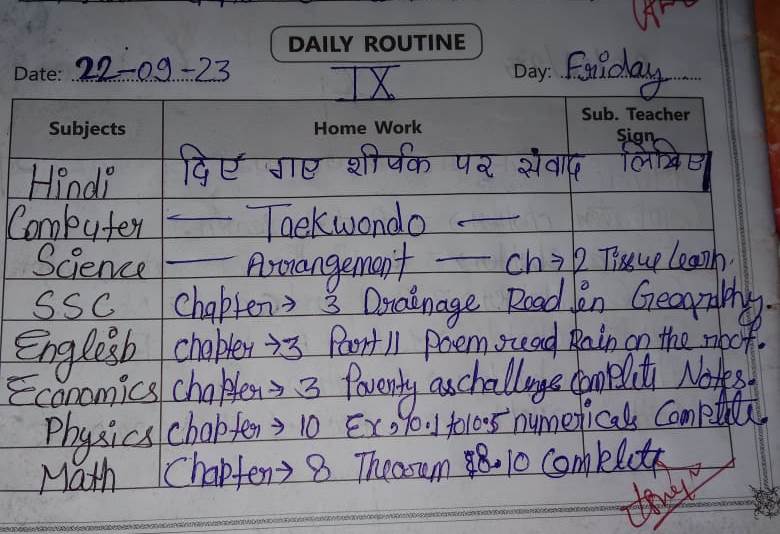 DAILY ROUTINE
Date: 22-09-23 IX Day: Friday
Subjects Home Work Sub. Teacher Sign
Hindi दिए गए शीर्षक पर संवाद लिखिए
Computer — Taekwondo —
Science — Arrangement — Ch→2 Tissue learn.
SSC Chapter→ 3 Drainage Read in Geography.
English chapter→3 Part II Poem read Rain on the roof.
Economics Chapter→ 3 Poverty as challenge Complete Notes.
Physics Chapter→ 10 Ex, 10.1 to 10.5 numericals Complete.
Math Chapter→ 8 Theorem 8.10 Complete